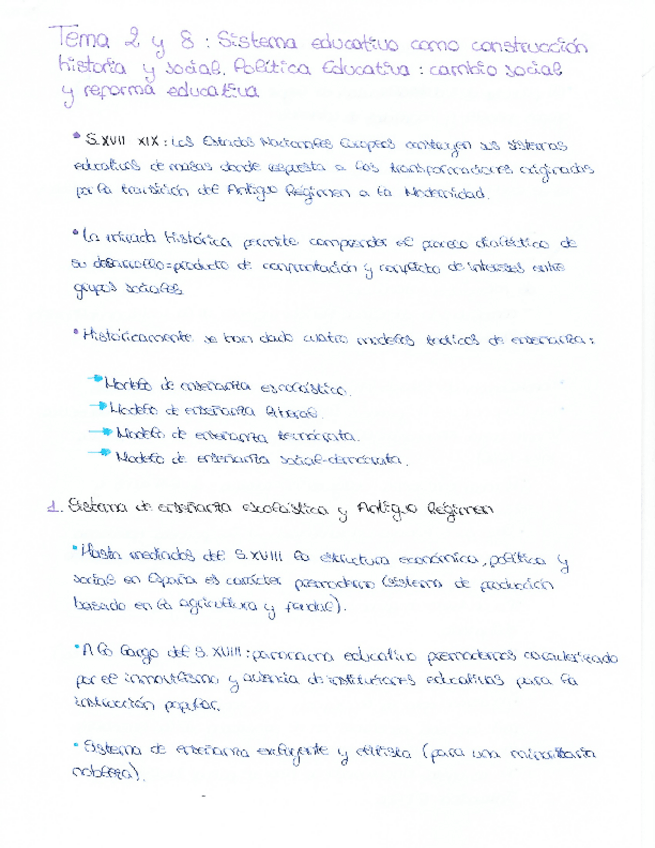 Tema 2 y 8: Sistema educativo como construcción
historia y social. Política Educativa: cambio social
y reforma educativa
• S.XVII XIX: Los Estados Nacionales Europeos construyen sus sistemas
educativos de masas dando respuesta a las transformaciones originadas
por la transición del Antiguo Régimen a la Modernidad.
• La mirada histórica permite comprender el proceso dialéctico de
su desarrollo = producto de confrontación y conflicto de intereses entre
grupos sociales
• Históricamente se han dado cuatro modelos teóricos de enseñanza:
→ Modelo de enseñanza escolástico.
→ Modelo de enseñanza liberal.
→ Modelo de enseñanza tecnócrata.
→ Modelo de enseñanza social-demócrata.
1. Sistema de enseñanza escolástica y Antiguo Régimen
• Hasta mediados del S.XVIII la estructura económica, política y
social en España es carácter premoderno (sistema de producción
basado en la agricultura y feudal).
• A lo largo del S. XVIII: panorama educativo premoderno caracterizado
por el inmovilismo y ausencia de instituciones educativas para la
instrucción popular.
• Sistema de enseñanza excluyente y elitista (para una minoritaria
nobleza).